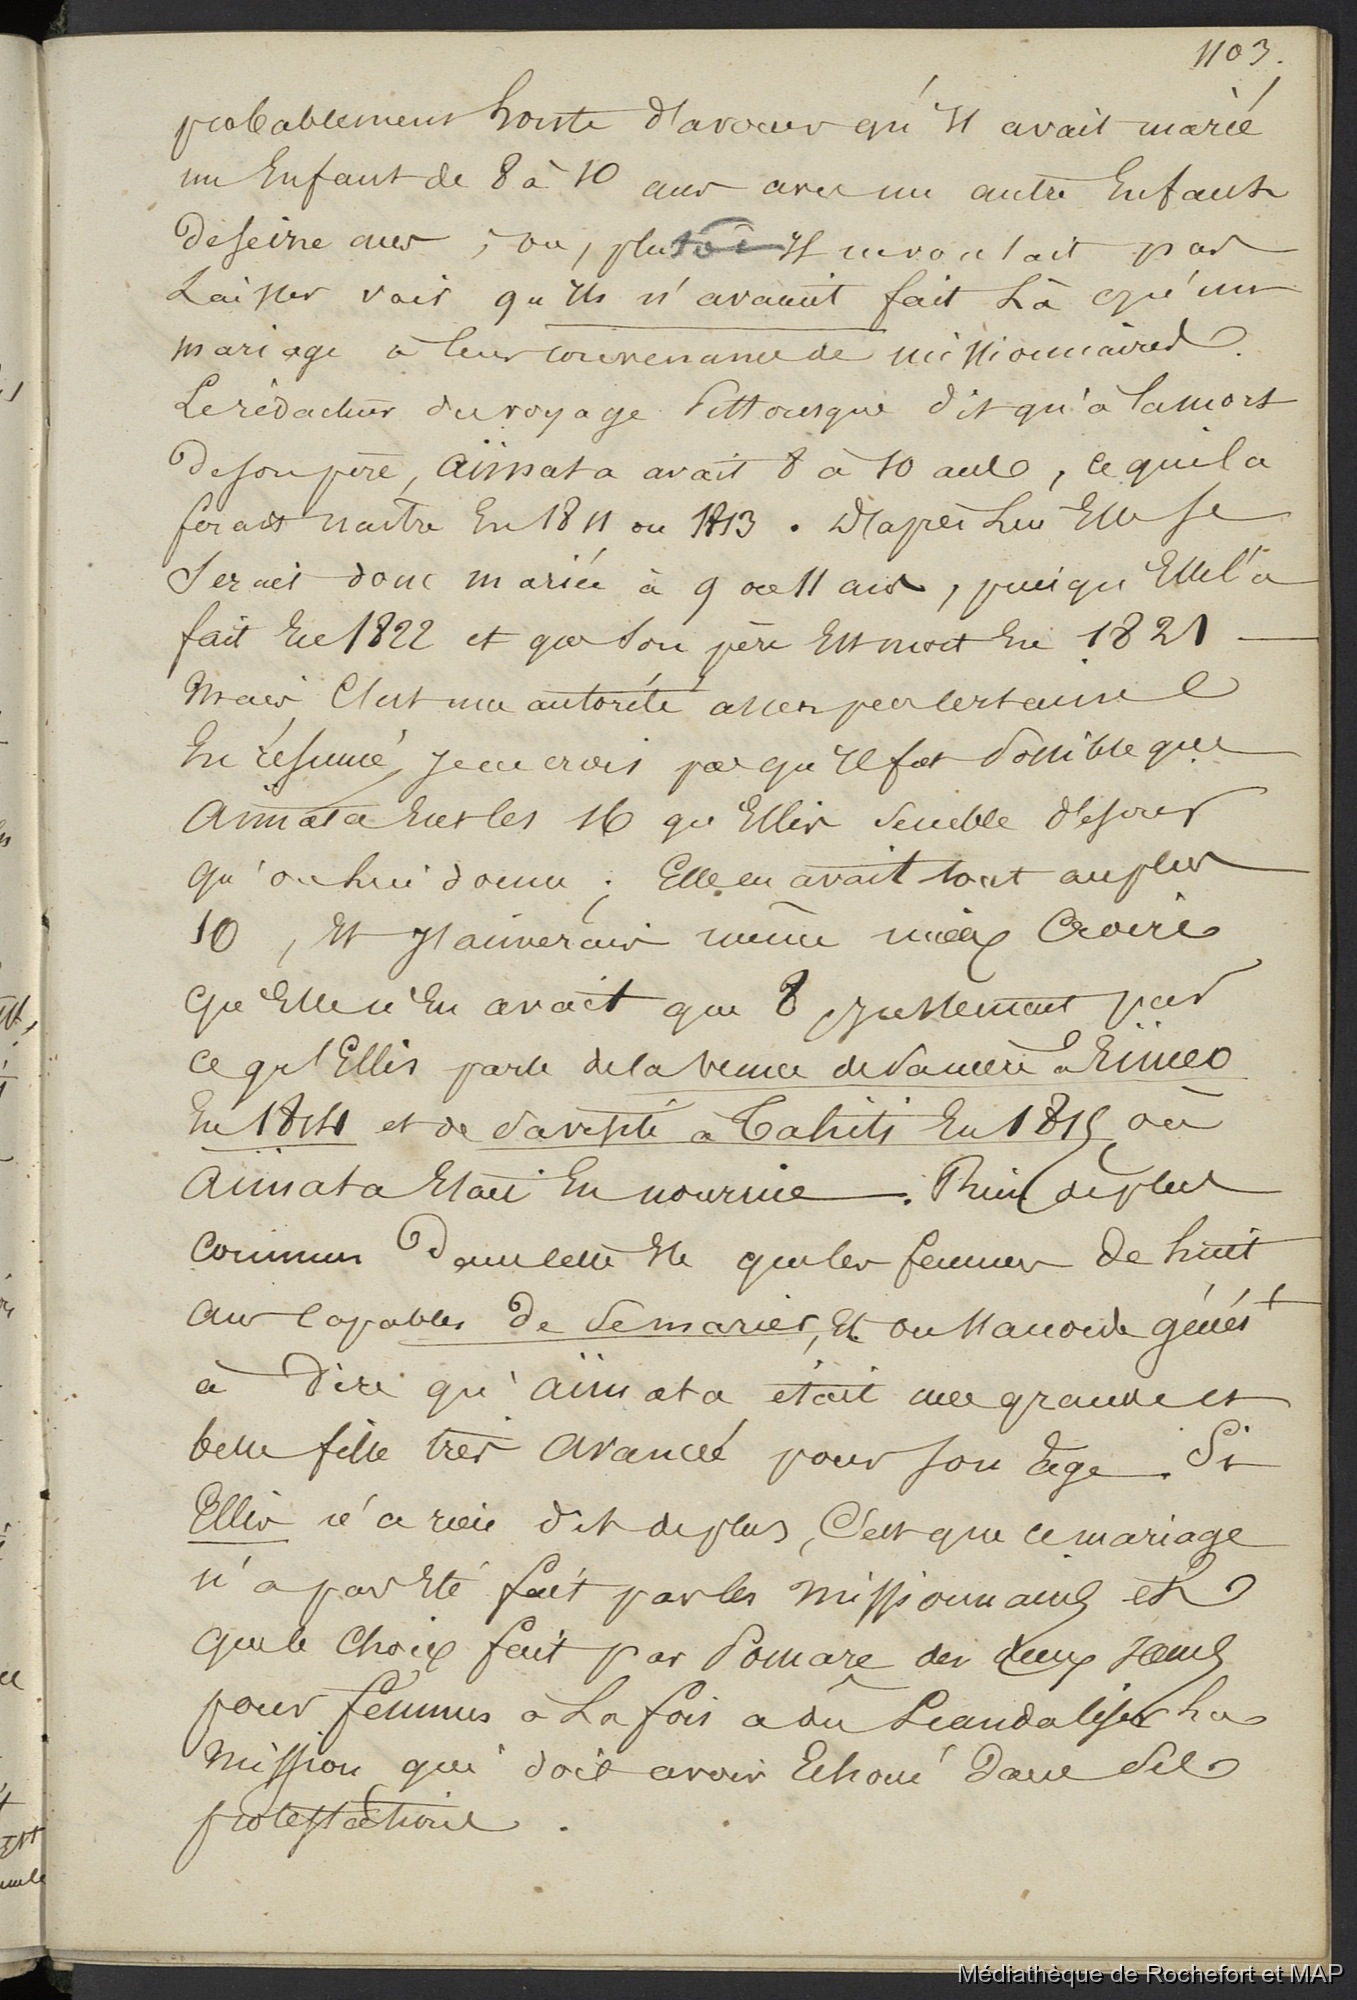 1103.
probablement honte d'avouer qu'il avait marié
un Enfant de 8 à 10 ans avec un autre Enfant
de seize ans ; ou, plutôt il ne voulait pas
Laisser voir qu'ils n'avaient fait Là qu'un
mariage à leur convenance de missionnaires.
Le rédacteur du voyage Pittoresque dit qu'à la mort
de son père, Aïmata avait 8 à 10 ans, ce qui la
ferait naitre En 1811 ou 1813. D'après Lui Elle se
Serait donc mariée à 9 ou 11 ans, puisqu'Elle l'a
fait En 1822 et que Son père Est mort En 1821 —
Mais C'est une autorité assez peu certaine
En résumé, je ne crois pas qu'il fut Possible que
Aïmata Eut les 16 qu'Ellis semble
qu'on lui donne ; Elle en avait tout au plus
10, Et j'aimerais même mieux Croire
qu'Elle n'En avait que 8 justement par
ce qu'Ellis parle de la venue de Sa mère à Eïmeo
En 1814 et de Sa visite à Tahiti En 1815 où
Aïmata Etait En nourrice. Rien de plus
commun Dans cette Ile que les femmes de huit
ans Capables De Se marier, Et on s'accorde génért
à Dire qu'Aïmata était une grande et
belle fille très avancée pour son âge. Si
Ellis n'a rien dit de plus, C'est que ce mariage
n'a pas Eté fait par les missionnaires et
que le Choix fait par Pomare des deux Sœurs
pour femmes à La fois a dû Scandaliser La
Mission qui doit avoir Echoué Dans Ses
protestations.
Médiathèque de Rochefort et MAP